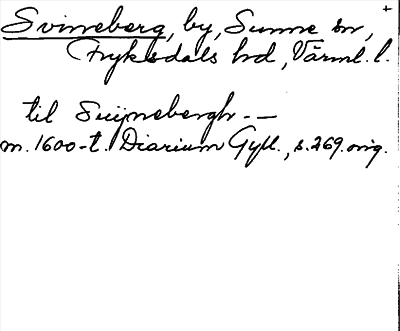 +
Svineberg, by, Sunne sn,
Fryksdals hd, Värml. l.
til Suijnebergh - -
m. 1600-t. Diarium Gyll., s. 269. orig.